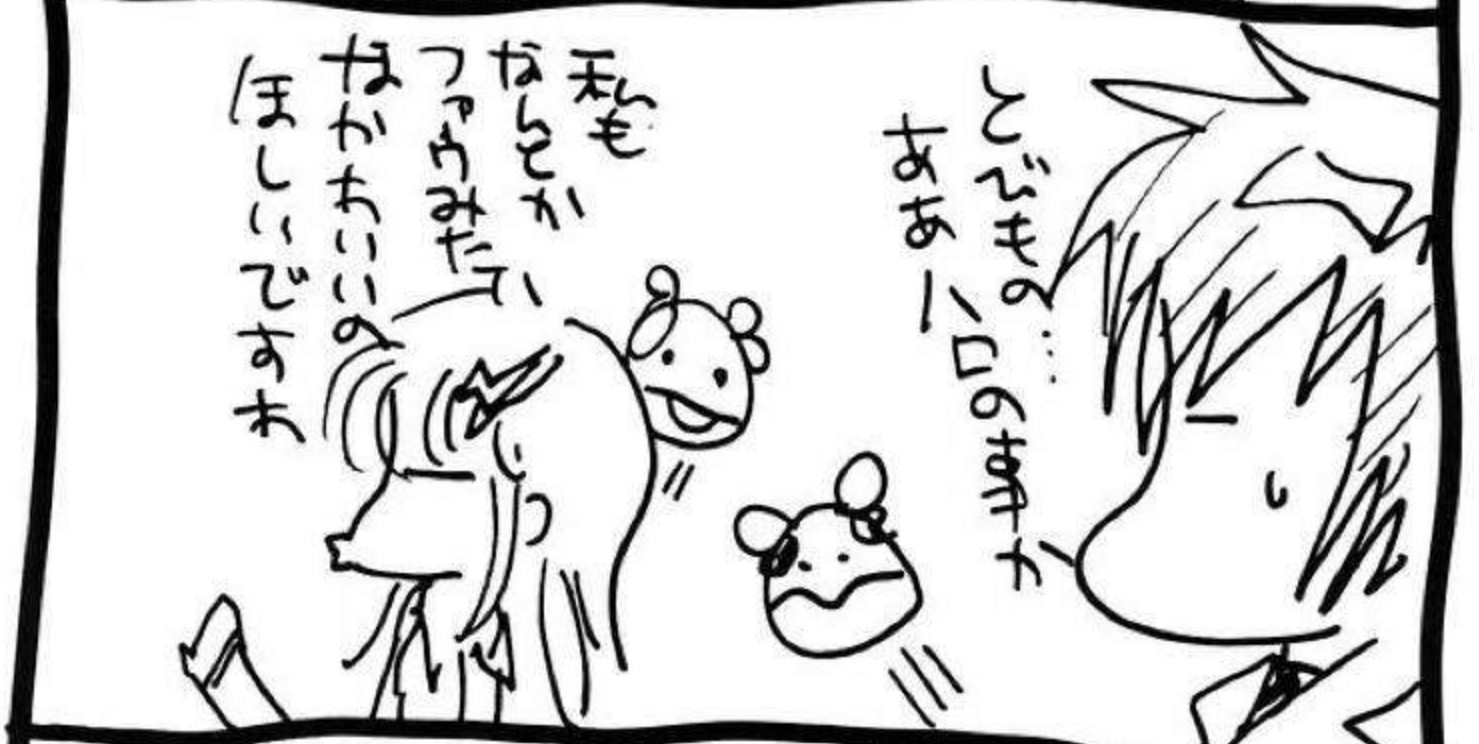 とびもの…
ああハロのまきか
私も
なんとか
ファゥみたい
なかわいいの
ほしいですわ